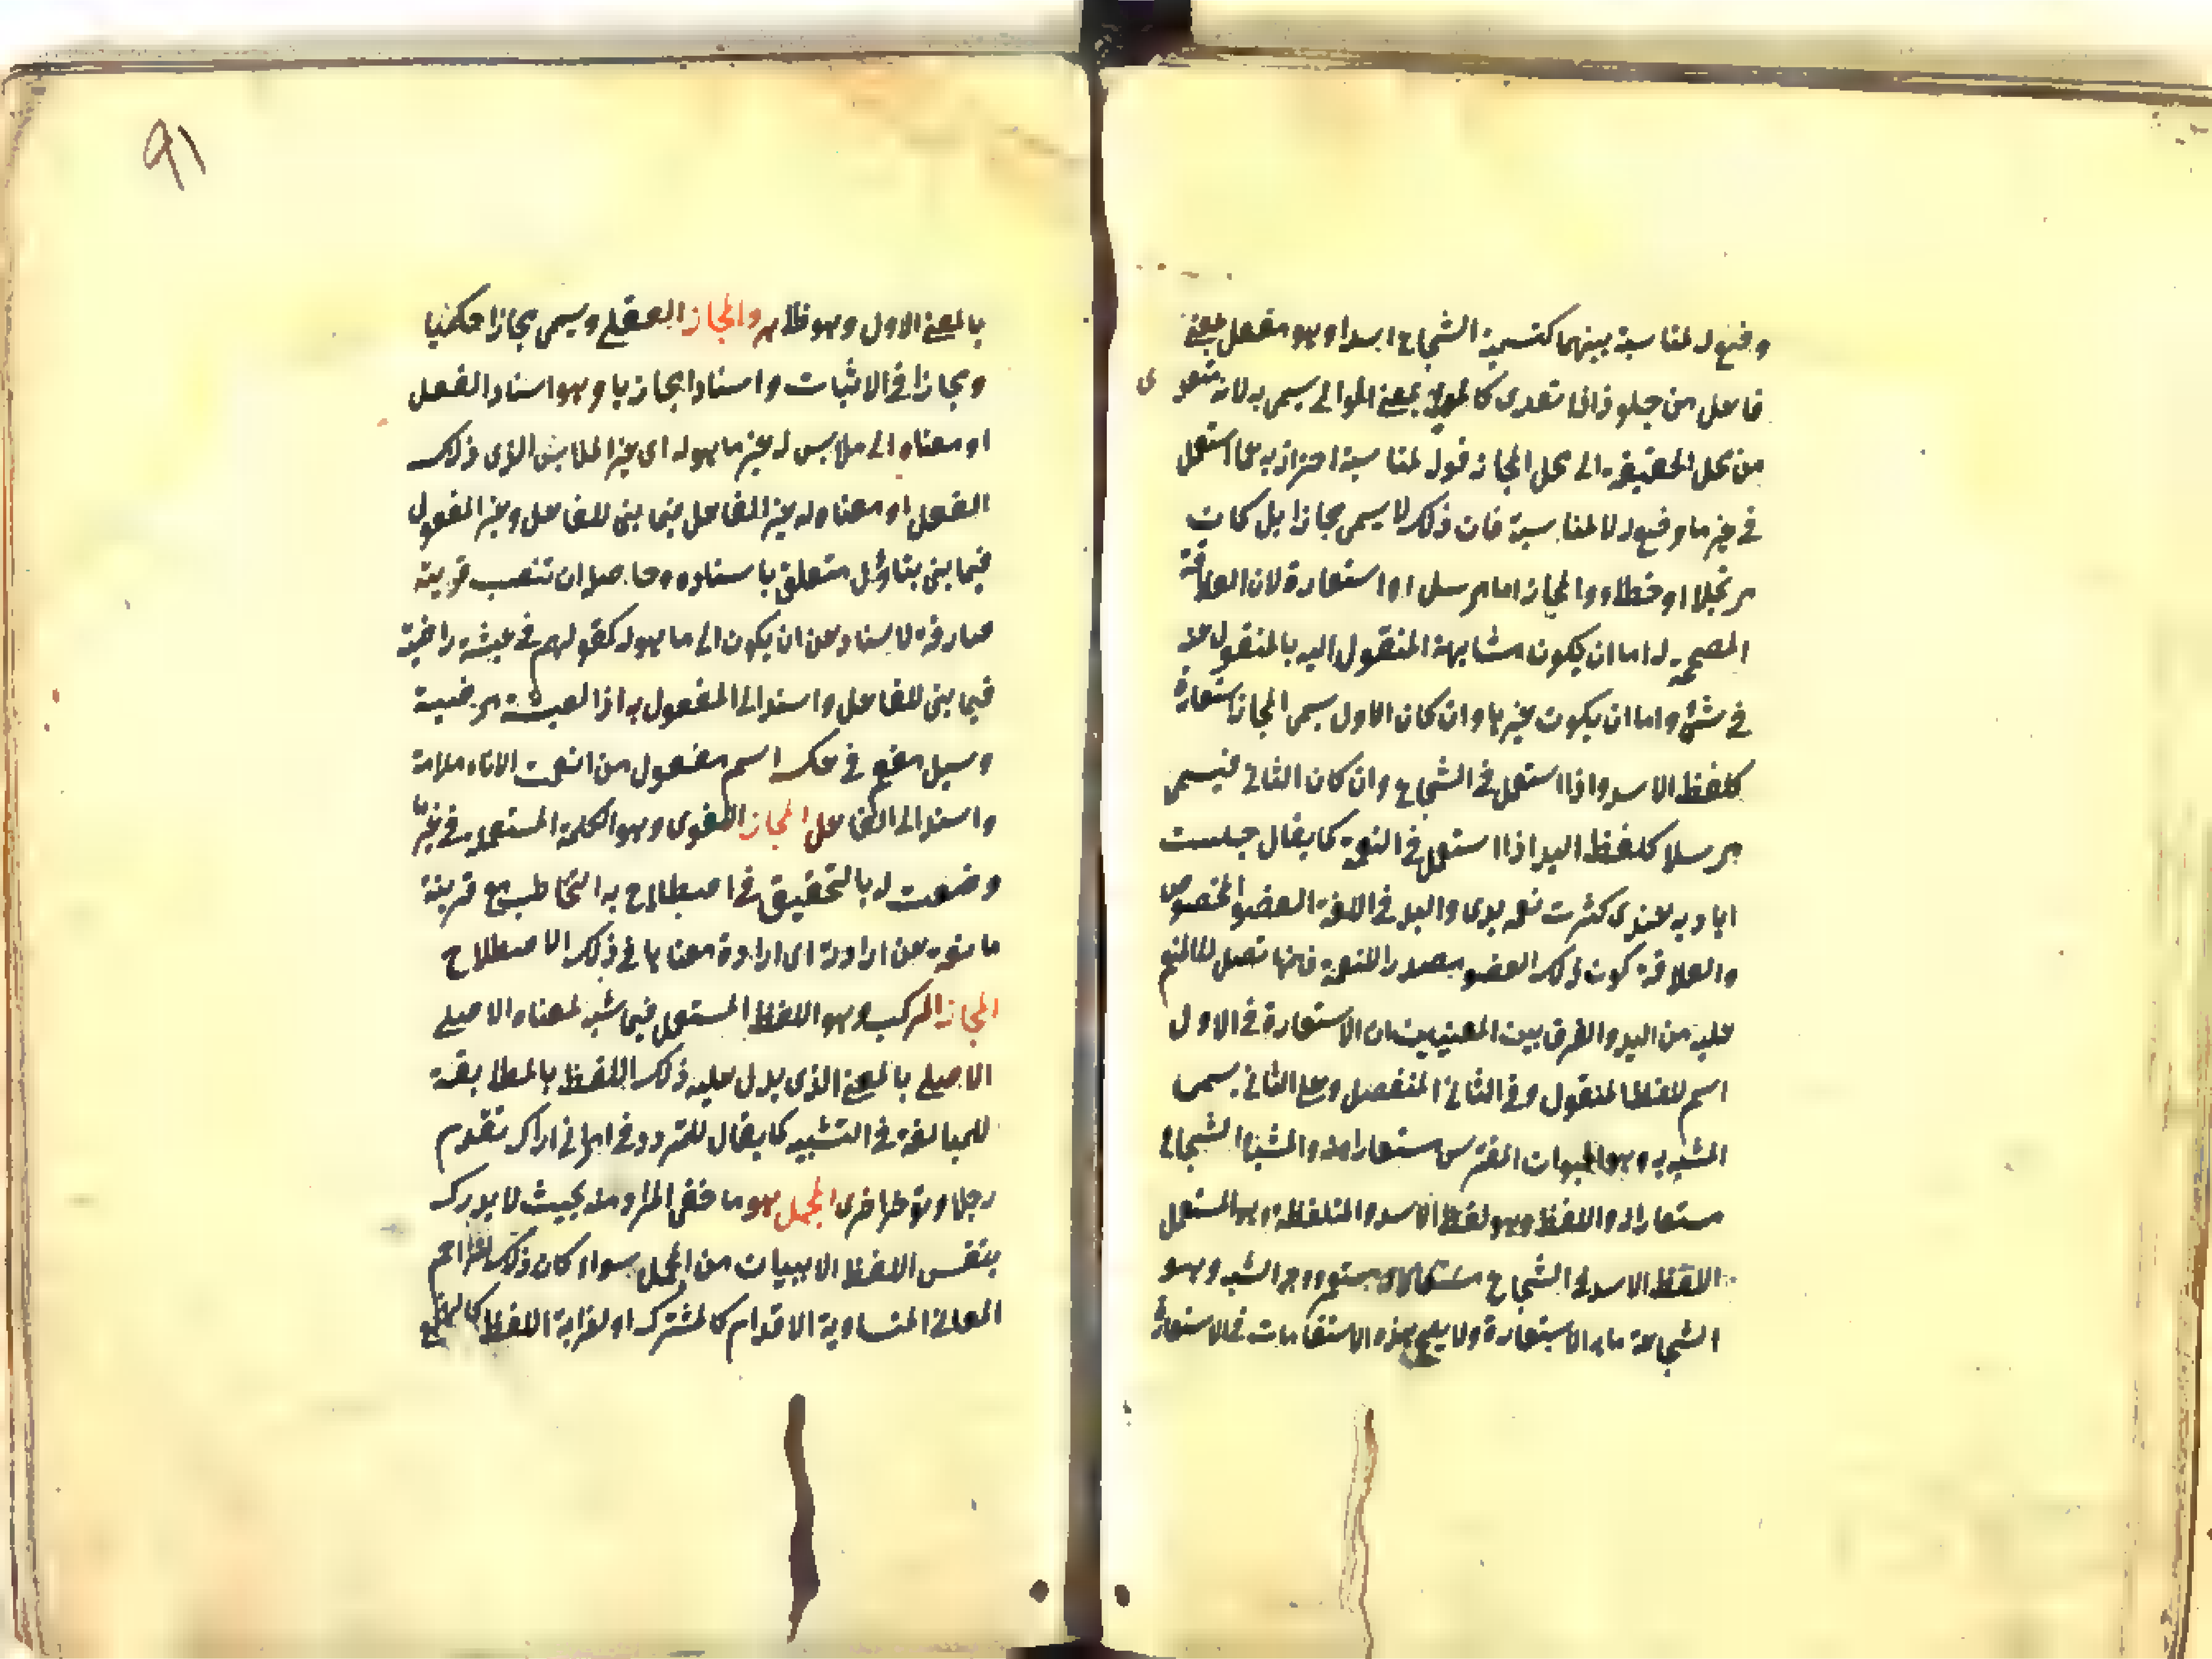 وضع له لمناسبة بينهما كتسمية الشجاع اسدا وهو مفعل بمعنى
فاعل من جاز اذا تعدى كالمولى بمعنى الوالي سمي به لانه متعد
ى
من محل الحقيقة الى محل المجاز قوله لمناسبة احتراز به عما استعمل
في غير ما وضع له لا لمناسبة فان ذلك لا يسمى مجازا بل كان
مرتجلا او خطاء والمجاز اما مرسل او استعارة لان العلاقة
المصححة له اما ان يكون مشابهة المنقول اليه بالمنقول عنه
في شئ واما ان يكون غيرها وان كان الاول يسمى المجاز استعارة
كلفظ الاسد اذا استعمل في الشجاع وان كان الثاني فيسمى
مرسلا كلفظ اليد اذا استعمل في النعمة كما يقال جلت
اياديه عندى كثرت نعمه لدى واليد في اللغة العضو المخصوص
والعلاقة كون ذلك العضو مصدرا للنعمة فانها تصل الى المنعم
عليه من اليد والفرق بين المعنيين ان الاستعارة في الاول
اسم للفظ المنقول وفي الثاني المنفصل وعلى الثاني يسمى
المشبه به وهو الحيوان المفترس مستعارا منه والمشبه الشجاع
مستعارا له واللفظ وهو لفظ الاسد والمتلفظ وهو المستعمل
اللفظ الاسد في الشجاع ووجه الشبه وهو
الشجاعة ما به الاستعارة ولا يصح هذه الاستقامات في الاستعارة
٩١
بالمعنى الاول وهو ظاهر والمجاز العقلي ويسمى مجازا حكميا
ومجازا في الاثبات واسنادا مجازيا وهو اسناد الفعل
او معناه الى ملابس له غير ما هو له اى غير الملابس الذى ذلك
الفعل او معناه له غير الفاعل فيما بنى للفاعل وغير المفعول
فيما بنى بتاول متعلق باسناده وحاصله ان تنصب قرينة
صارفة لاسناد عن ان يكون الى ما هو له كقولهم في عيشة راضية
فيما بنى للفاعل واسند الى المفعول به اذ العيشة مرضية
وسيل مفعم في عكسه اسم مفعول من افعمت الاناء ملاءته
واسند الى الفاعل المجاز اللغوى وهو الكلمة المستعملة في غير ما
وضعت له بالتحقيق في اصطلاح به التخاطب مع قرينة
مانعة عن ارادته اى ارادة معناها في ذلك الاصطلاح
المجاز المركب وهو اللفظ المستعمل فيما شبه لمعناه الاصلي
الاصلي بالمعنى الذى يدل عليه ذلك اللفظ بالمطابقة
للمبالغة في التشبيه كما يقال للمتردد في امر اني اراك تقدم
رجلا وتؤخر اخرى المجمل هو ما خفى المراد منه بحيث لا يدرك
بنفس اللفظ الا ببيان من المجمل سواء كان ذلك لتزاحم
المعاني المتساوية الاقدام كالمشترك او لغرابة اللفظ كالهلوع